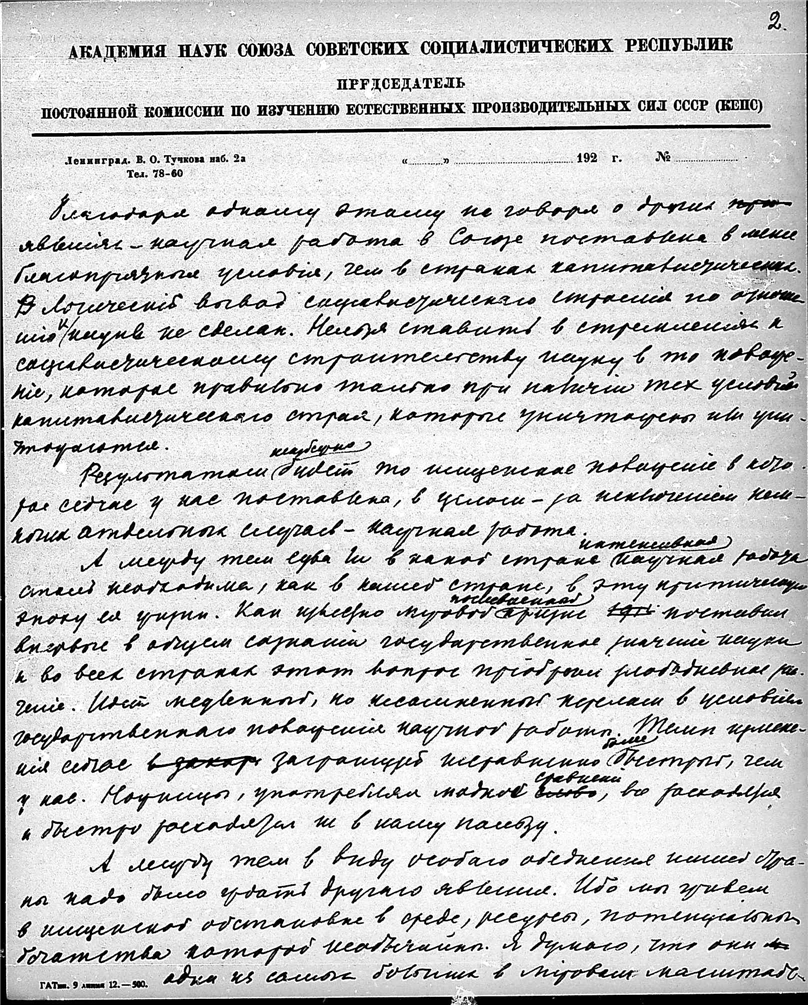 2.
АКАДЕМИЯ НАУК СОЮЗА СОВЕТСКИХ СОЦИАЛИСТИЧЕСКИХ РЕСПУБЛИК
ПРЕДСЕДАТЕЛЬ
ПОСТОЯННОЙ КОМИССИИ ПО ИЗУЧЕНИЮ ЕСТЕСТВЕННЫХ ПРОИЗВОДИТЕЛЬНЫХ СИЛ СССР (КЕПС)
Ленинград. В. О. Тучкова наб. 2а
Тел. 78-60
« » 192 г. №
Благодаря одному этому не говоря о других
явленіях – научная работа в Союзе поставлена в менее
благопріятныя условія, чем в странах капиталистических.
Логическій вывод соціалистическаго строенія по отноше
нію к науке не сделан. Нельзя ставить в стремленіях к
соціалистическому строительству науку в то положе-
ніе, которое правильно только при наличіи тех условій
капиталистическаго строя, которые уничтожены или уни-
чтожаются.
неизбежно
Результатом будет то нищенское положеніе в кото-
рое сейчас у нас поставлена, в целом – за исключеніем нем-
ногих отдельных случаев – научная работа.
интенсивная
А между тем едва ли в какой стране научная работа
столь необходима, как в нашей стране, в эту критическую
эпоху ея жизни. Как известно міровой кризис поставил
послевоенный
впервые в общем сознаніи государственное значеніе науки
и во всех странах этот вопрос пріобрел злободневное зна-
ченіе. Идет медленный, но несомненный перелом в условіях
государственнаго положенія научной работы. Темп измене-
более
нія сейчас заграницей несравненно быстрый, чем
сравнение
у нас. Ножницы, употребляя модное, все расходятся
и быстро расходятся не в нашу пользу.
А между тем в виду особаго обеднения нашей стра-
ны надо было ждать другого явленія. Ибо мы живем
в нищенской обстановке в среде, ресурсы, потенціальныя
богатства которой необычайны. Я думаю, что они
одни из самых больших в міровом масштабе
ГАТип. 9 линия 12.—500.